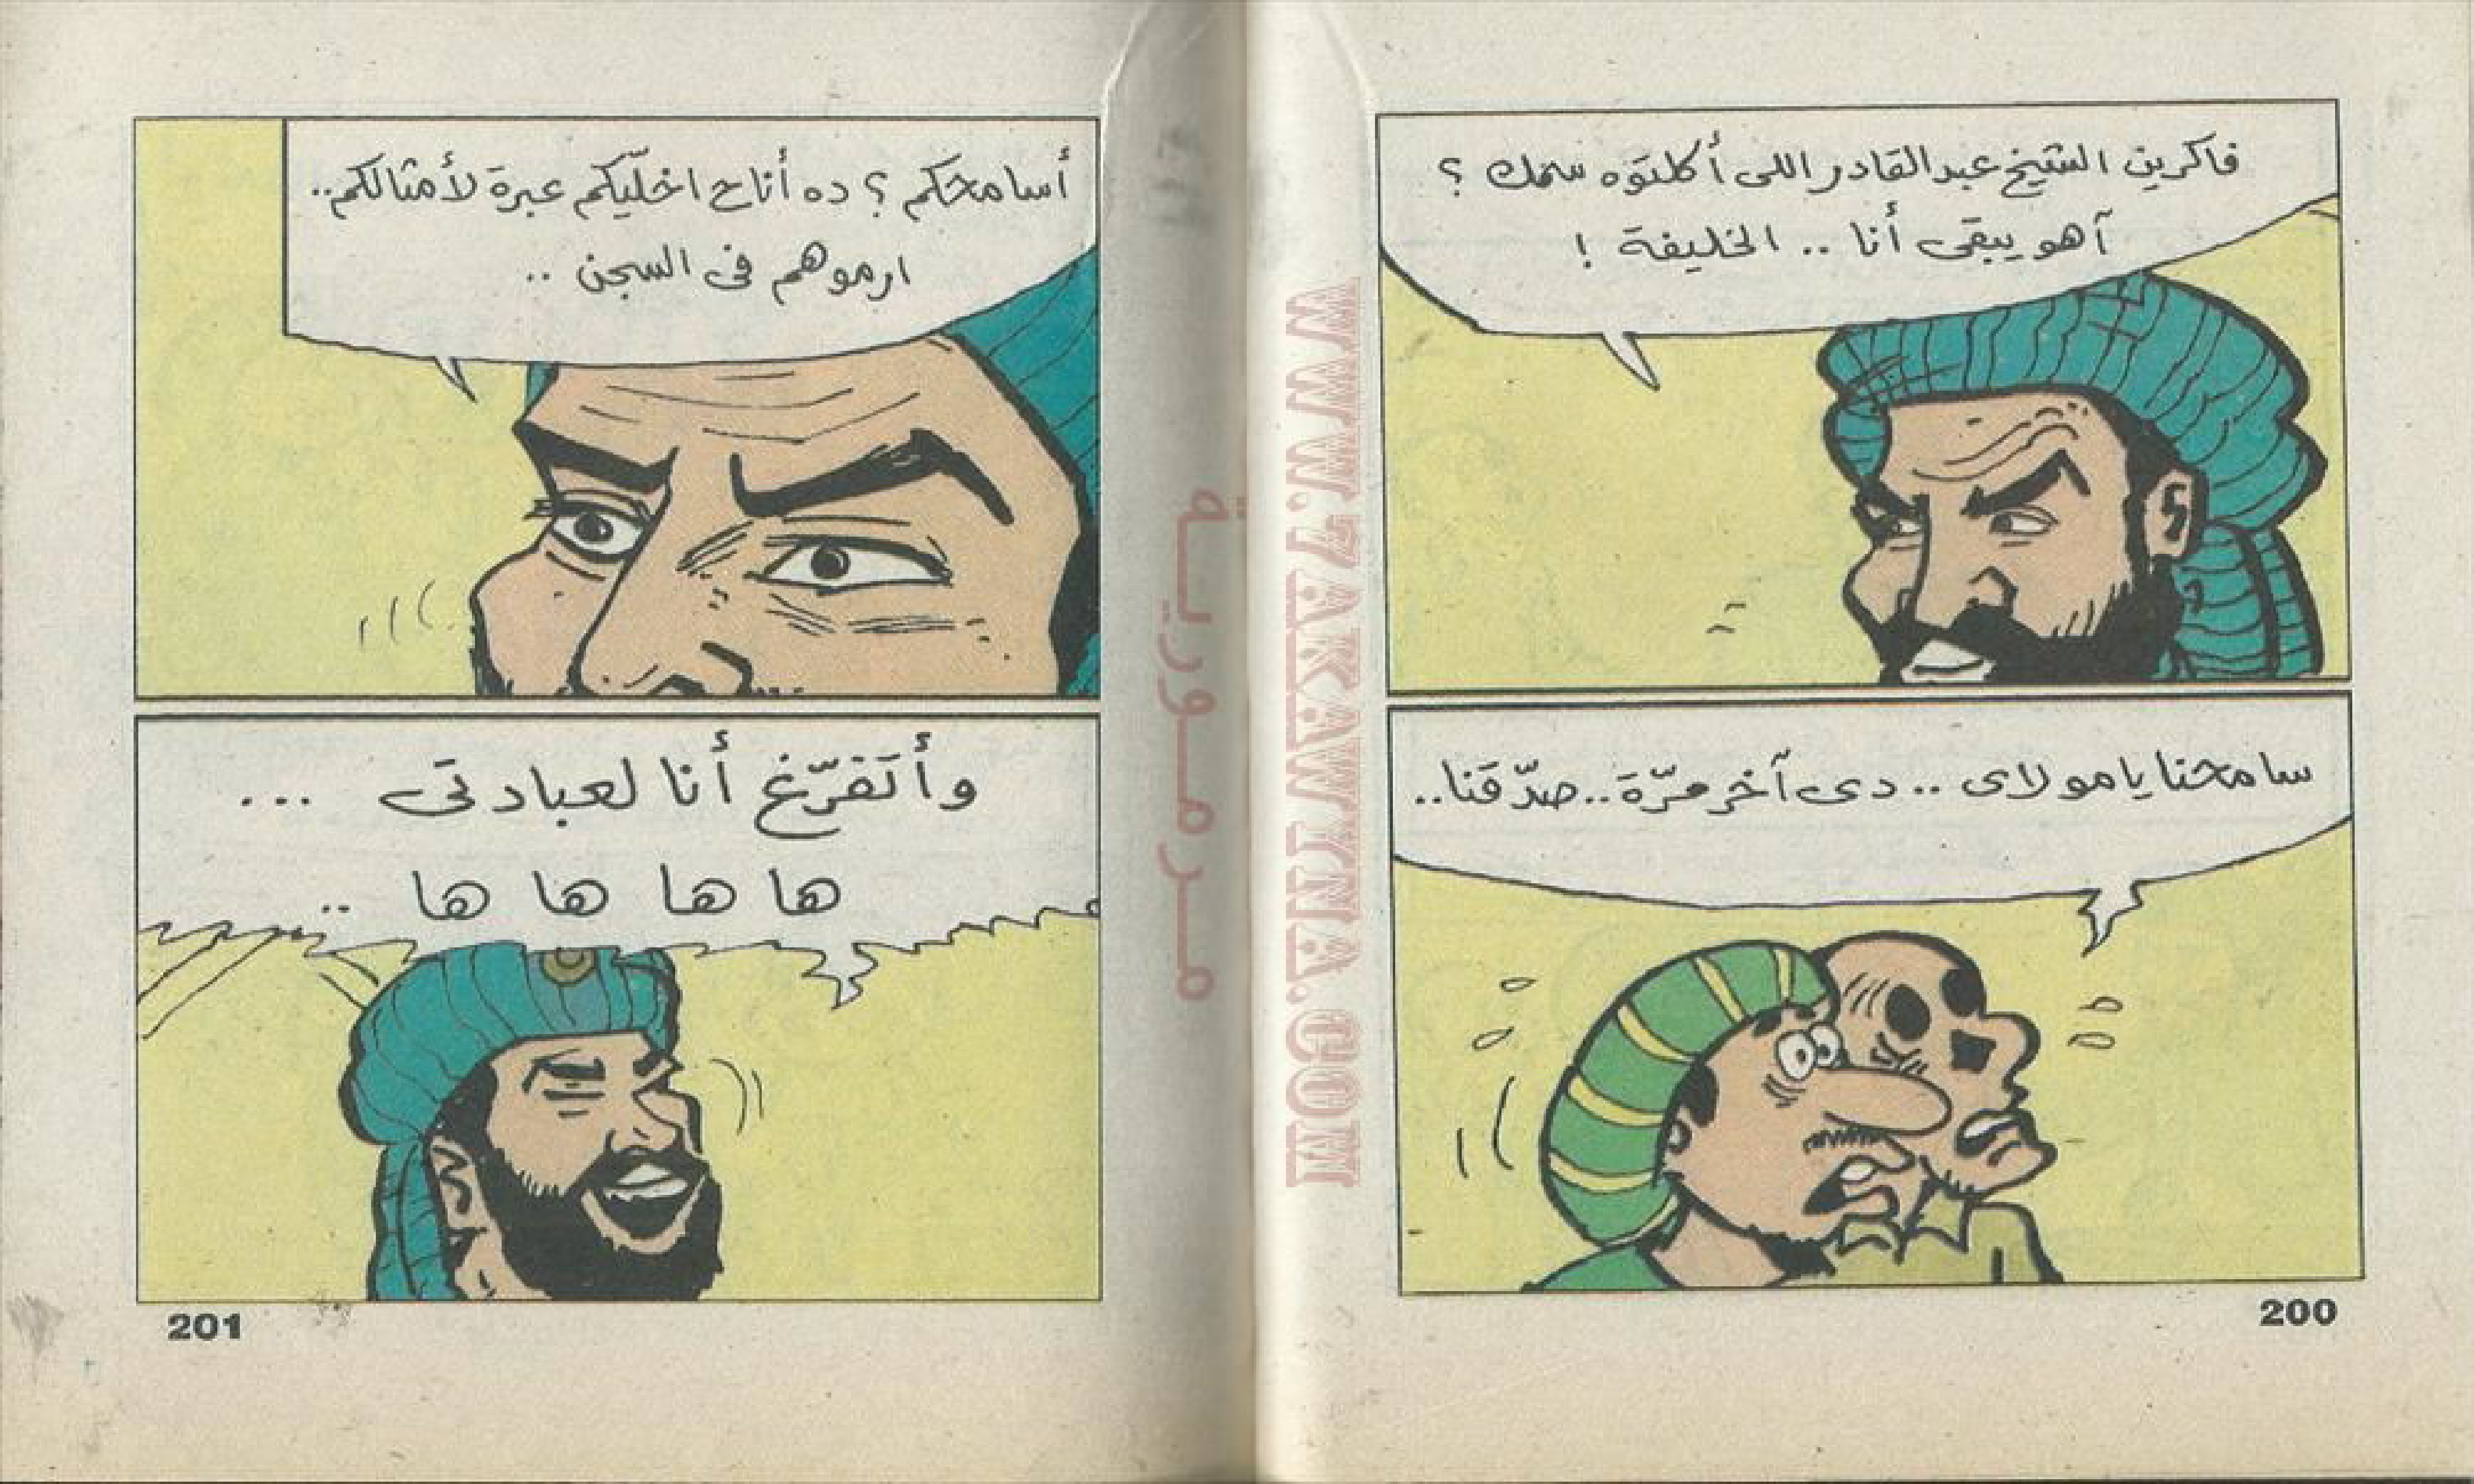 فاكرين الشيخ عبدالقادر اللى أكلتوه سمك ؟
آهو يبقى أنا .. الخليفة !
سامحنا يا مولاى .. دى آخر مرّة .. صدّقنا ..
200
أسامحكم ؟ ده أنا ح اخلّيكم عبرة لأمثالكم ..
ارموهم فى السجن ..
وأتفرّغ أنا لعبادتى ...
ها ها ها ها ..
201
مرمورية
WWW.7AKAWYNA.COM